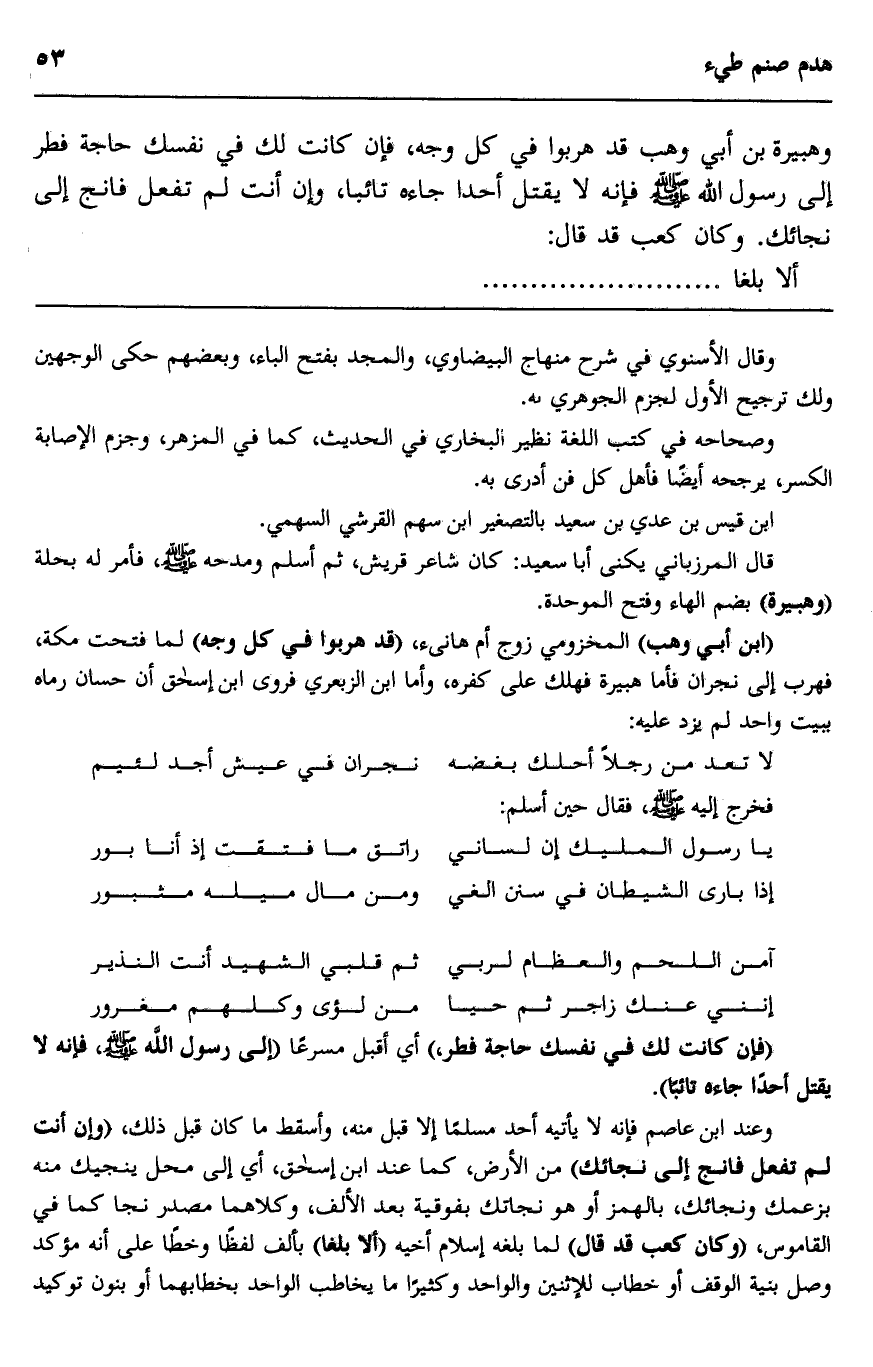 هدم صنم طيء ٥٣
وهبيرة بن أبي وهب قد هربوا في كل وجه، فإن كانت لك في نفسك حاجة فطر
إلى رسول الله ﷺ فإنه لا يقتل أحدا جاءه تائبا، وإن أنت لم تفعل فانج إلى
نجائك. وكان كعب قد قال:
ألا بلغا .........................
وقال الأسنوي في شرح منهاج البيضاوي، والمجد بفتح الباء، وبعضهم حكى الوجهين
ولك ترجيح الأول لجزم الجوهري به.
وصحاحه في كتب اللغة نظير البخاري في الحديث، كما في المزهر، وجزم الإصابة
الكسر، يرجحه أيضًا فأهل كل فن أدرى به.
ابن قيس بن عدي بن سعيد بالتصغير ابن سهم القرشي السهمي.
قال المرزباني يكنى أبا سعيد: كان شاعر قريش، ثم أسلم ومدحه ﷺ، فأمر له بحلة
(وهبيرة) بضم الهاء وفتح الموحدة.
(ابن أبي وهب) المخزومي زوج أم هانىء، (قد هربوا في كل وجه) لما فتحت مكة،
فهرب إلى نجران فأما هبيرة فهلك على كفره، وأما ابن الزبعري فروى ابن إسحٰق أن حسان رماه
ببيت واحد لم يزد عليه:
لا تعد من رجلاً أحلك بغضه نجران في عيش أجد لئيم
فخرج إليه ﷺ، فقال حين أسلم:
يا رسول المليك إن لساني راتق ما فتقت إذ أنا بور
إذا بارى الشيطان في سنن الغي ومن مال ميله مثبور
آمن اللحم والعظام لربي ثم قلبي الشهيد أنت النذير
إنني عنك زاجر ثم حيا من لؤى وكلهم مغرور
(فإن كانت لك في نفسك حاجة فطر،) أي أقبل مسرعًا (إلى رسول اللَّه ﷺ، فإنه لا
يقتل أحدًا جاءه تائبًا).
وعند ابن عاصم فإنه لا يأتيه أحد مسلمًا إلا قبل منه، وأسقط ما كان قبل ذلك، (وإن أنت
لم تفعل فانج إلى نجائك) من الأرض، كما عند ابن إسحٰق، أي إلى محل ينجيك منه
بزعمك ونجائك، بالهمز أو هو نجاتك بفوقية بعد الألف، وكلاهما مصدر نجا كما في
القاموس، (وكان كعب قد قال) لما بلغه إسلام أخيه (ألا بلغا) بألف لفظًا وخطًا على أنه مؤكد
وصل بنية الوقف أو خطاب للإثنين والواحد وكثيرًا ما يخاطب الواحد بخطابهما أو بنون توكيد